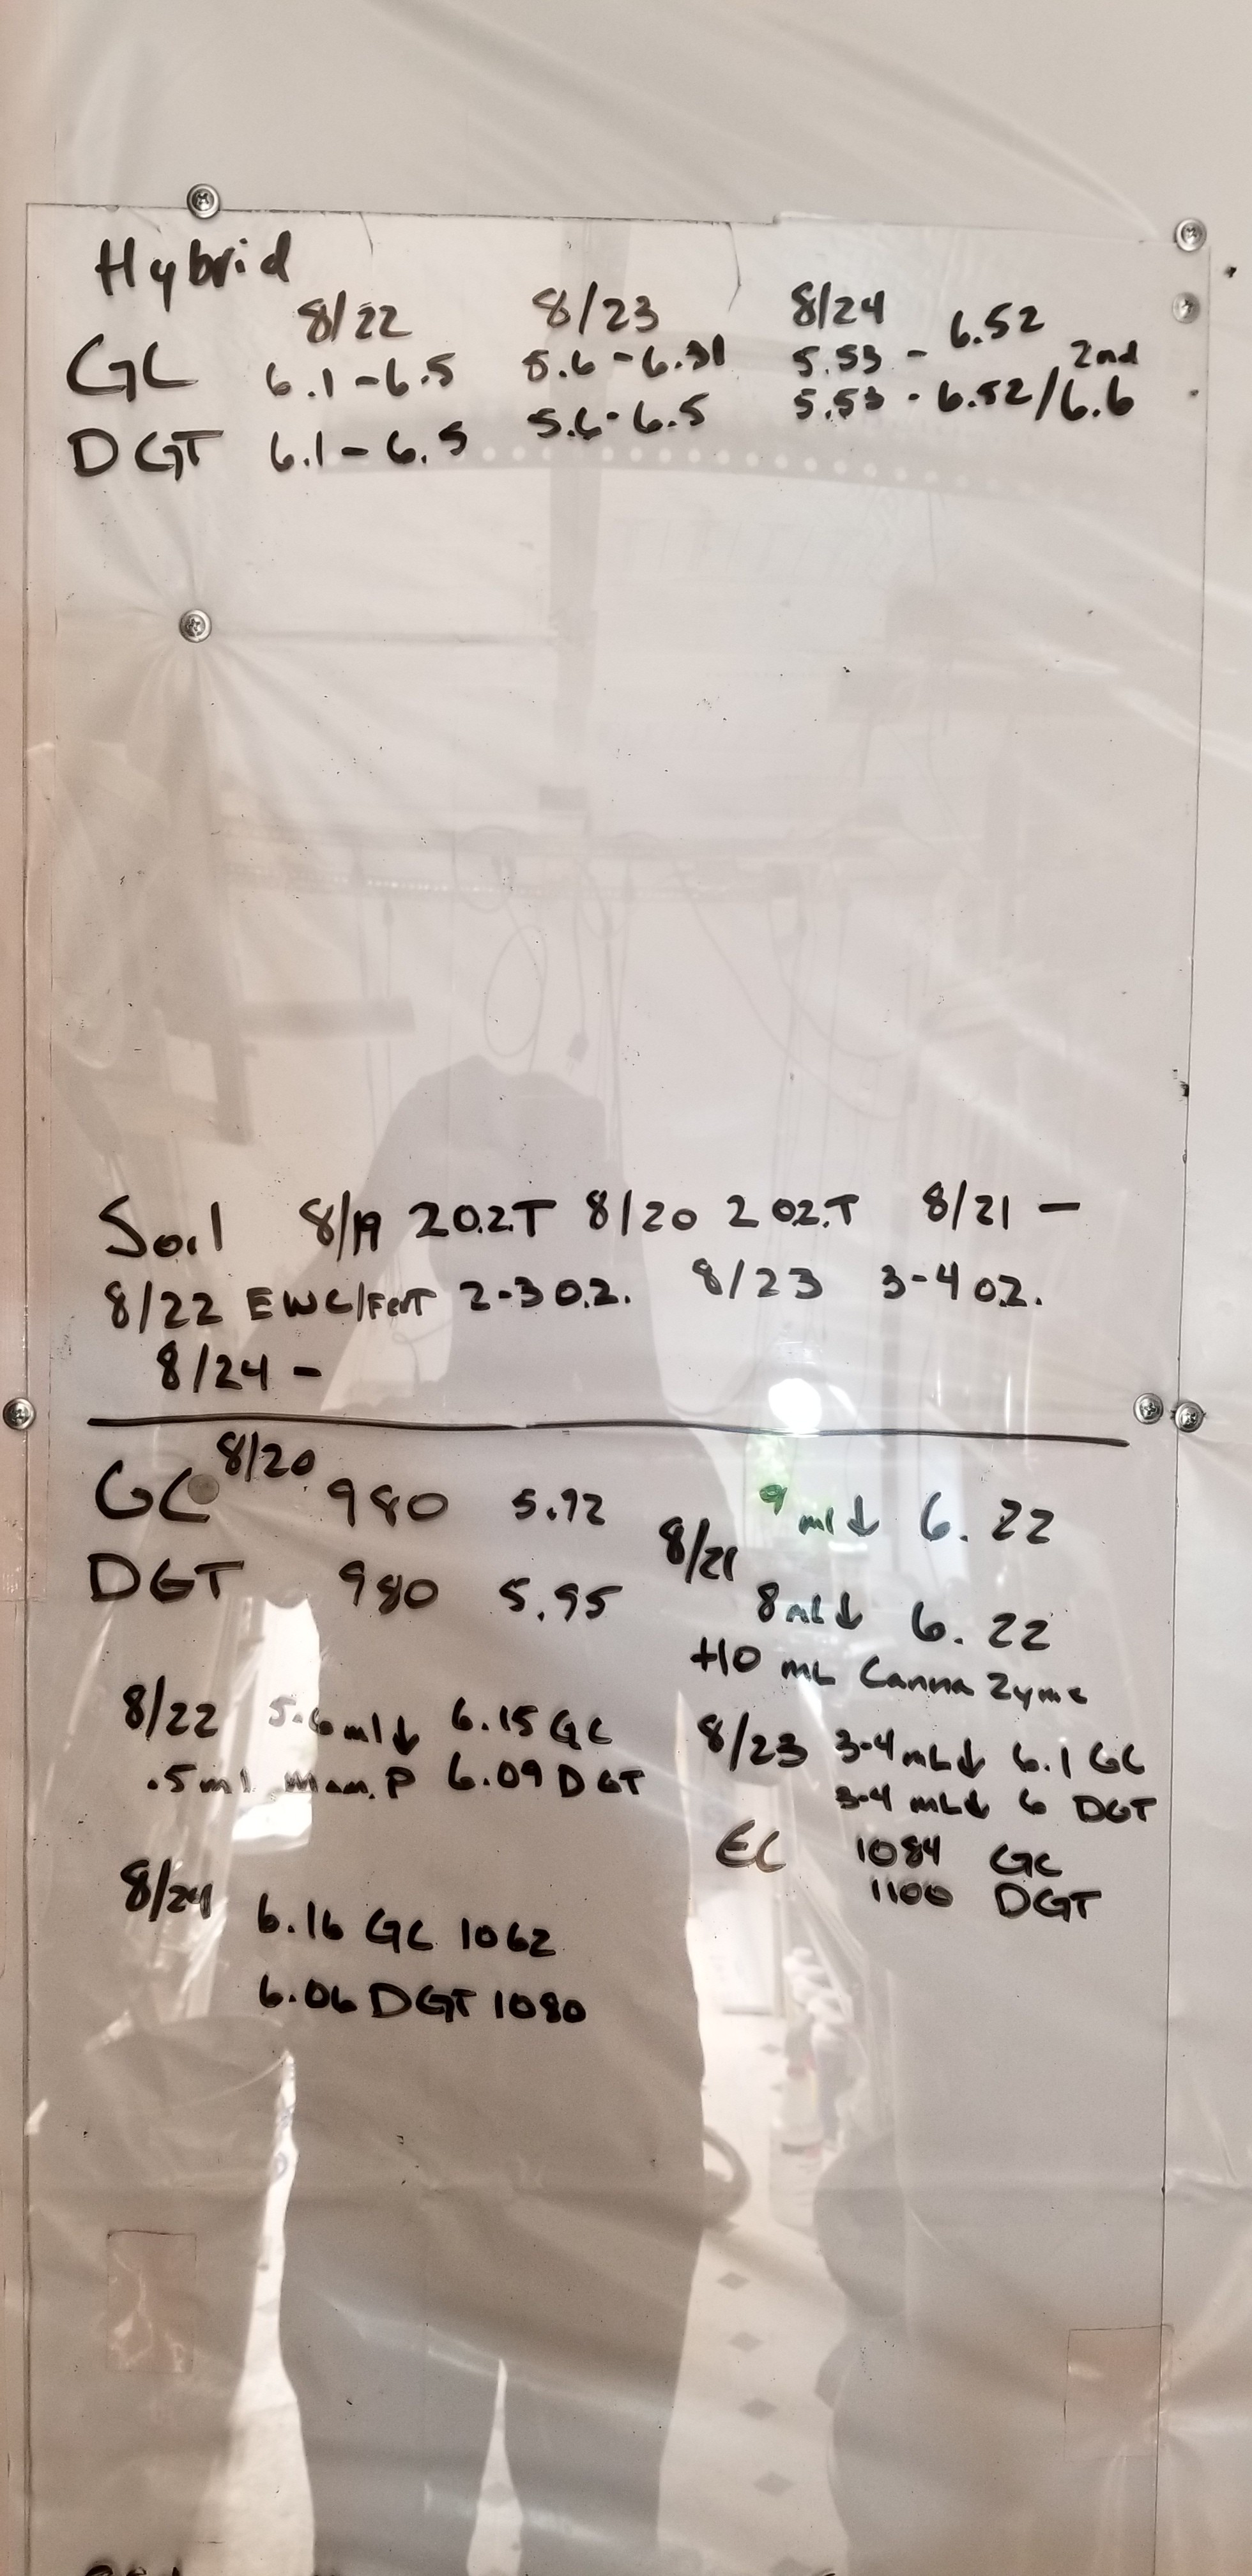 Hybrid
8/22 8/23 8/24
GC 6.1-6.5 5.6-6.31 5.53 - 6.52
2nd
DGT 6.1-6.5 5.6-6.5 5.53 - 6.52/6.6
Soil 8/19 2 oz.T 8/20 2 oz.T 8/21 -
8/22 EWC/Fert 2-3 oz. 8/23 3-4 oz.
8/24 -
GC 8/20 980 5.72
DGT 980 5.95
8/21 9 ml↓ 6.22
8 mL↓ 6.22
+10 mL Canna Zyme
8/22 5-6 ml↓ 6.15 GC
.5 ml Mam. P 6.09 DGT
8/23 3-4 mL↓ 6.1 GC
3-4 mL↓ 6 DGT
EC 1084 GC
1100 DGT
8/24
6.16 GC 1062
6.06 DGT 1080